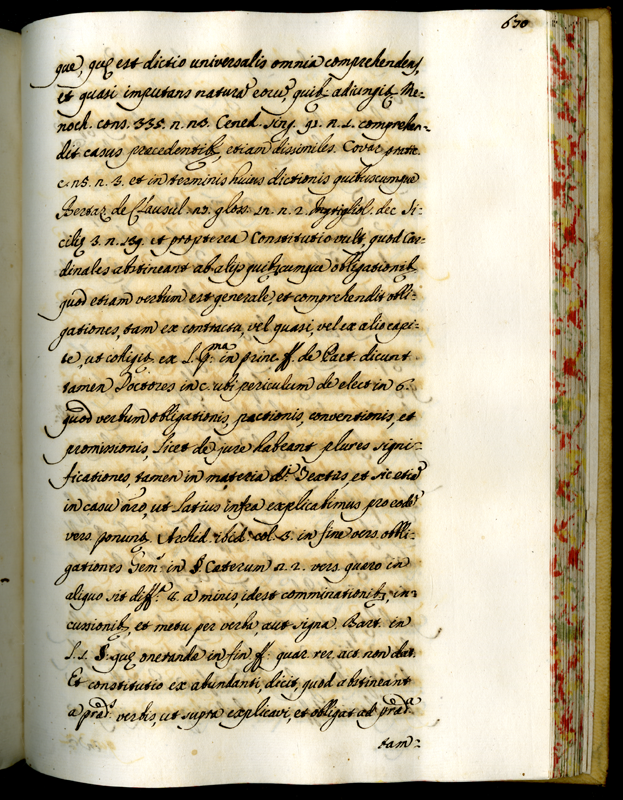 630
que, quę est dictio universalis omnia comprehendens,
et quasi imputans natura eoru, quib. adiungit. Me-
noch. cons. 335. n. n3. Cened. sing. 91. n. 1. comprehen-
dit casus precedentib., etiam dissimiles. Covar. pratic.
c. n5. n. 3. et in terminis huius dictionis quibuscumque
Bertaz. de Clausul. n3. gloss. in n. 2. dec. Si-
cilię 3. n. et propterea Constitutio vult, quod Car-
dinales abstineant ab alijs quibuscumque obligationib.
quod etiam verbum est generale, et comprehendit obli-
gationes, tam ex contractu, vel quasi, vel ex alio capi-
te, ut coligit. ex l. p.ma in princ. ff. de Pact. dicunt
tamen Doctores in c. ubi periculum de elect. in 6.
quod verbum obligationis, pactionis, conventionis, et
promissionis, licet de jure habeant plures signi-
ficationes, tamen in materia d. Textus et sic etia
in casu nro, ut latius infra explicabimus pro eode
vers. ponunt. Archid. ibid. col. 5. in fine vers. obli-
gationes Gem. in §. Caeterum n. 2. vers. quaro in
aliquo sit diff.a 8. a minis, idest comminationib., in-
cussionib., et metu per verba, aut signa Bart. in
l. 1. §. quę oneranda in fin. ff. quar. rer. act. non dat.
Et constitutio ex abundanti, dicit, quod abstineant
a prad.s verbis, ut supra explicavi, et obligat ad prad.a
tam-